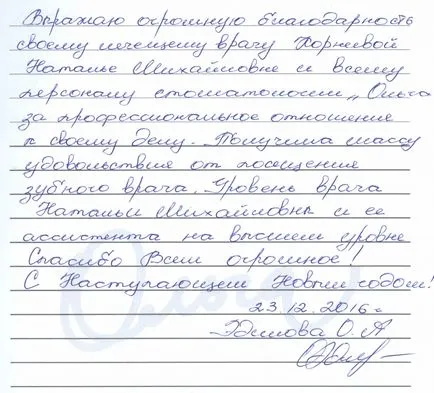 Выражаю огромную благодарность
своему лечащему врачу Корневой
Наталье Михайловне и всему
персоналу стоматологии „Ольга
за профессиональное отношение
к своему делу. Получила массу
удовольствия от посещения
зубного врача. Уровень врача
Натальи Михайловны и ее
ассистента на высшем уровне
Спасибо Всем огромное!
С Наступающим Новым годом!
23.12.2016 г
О. А